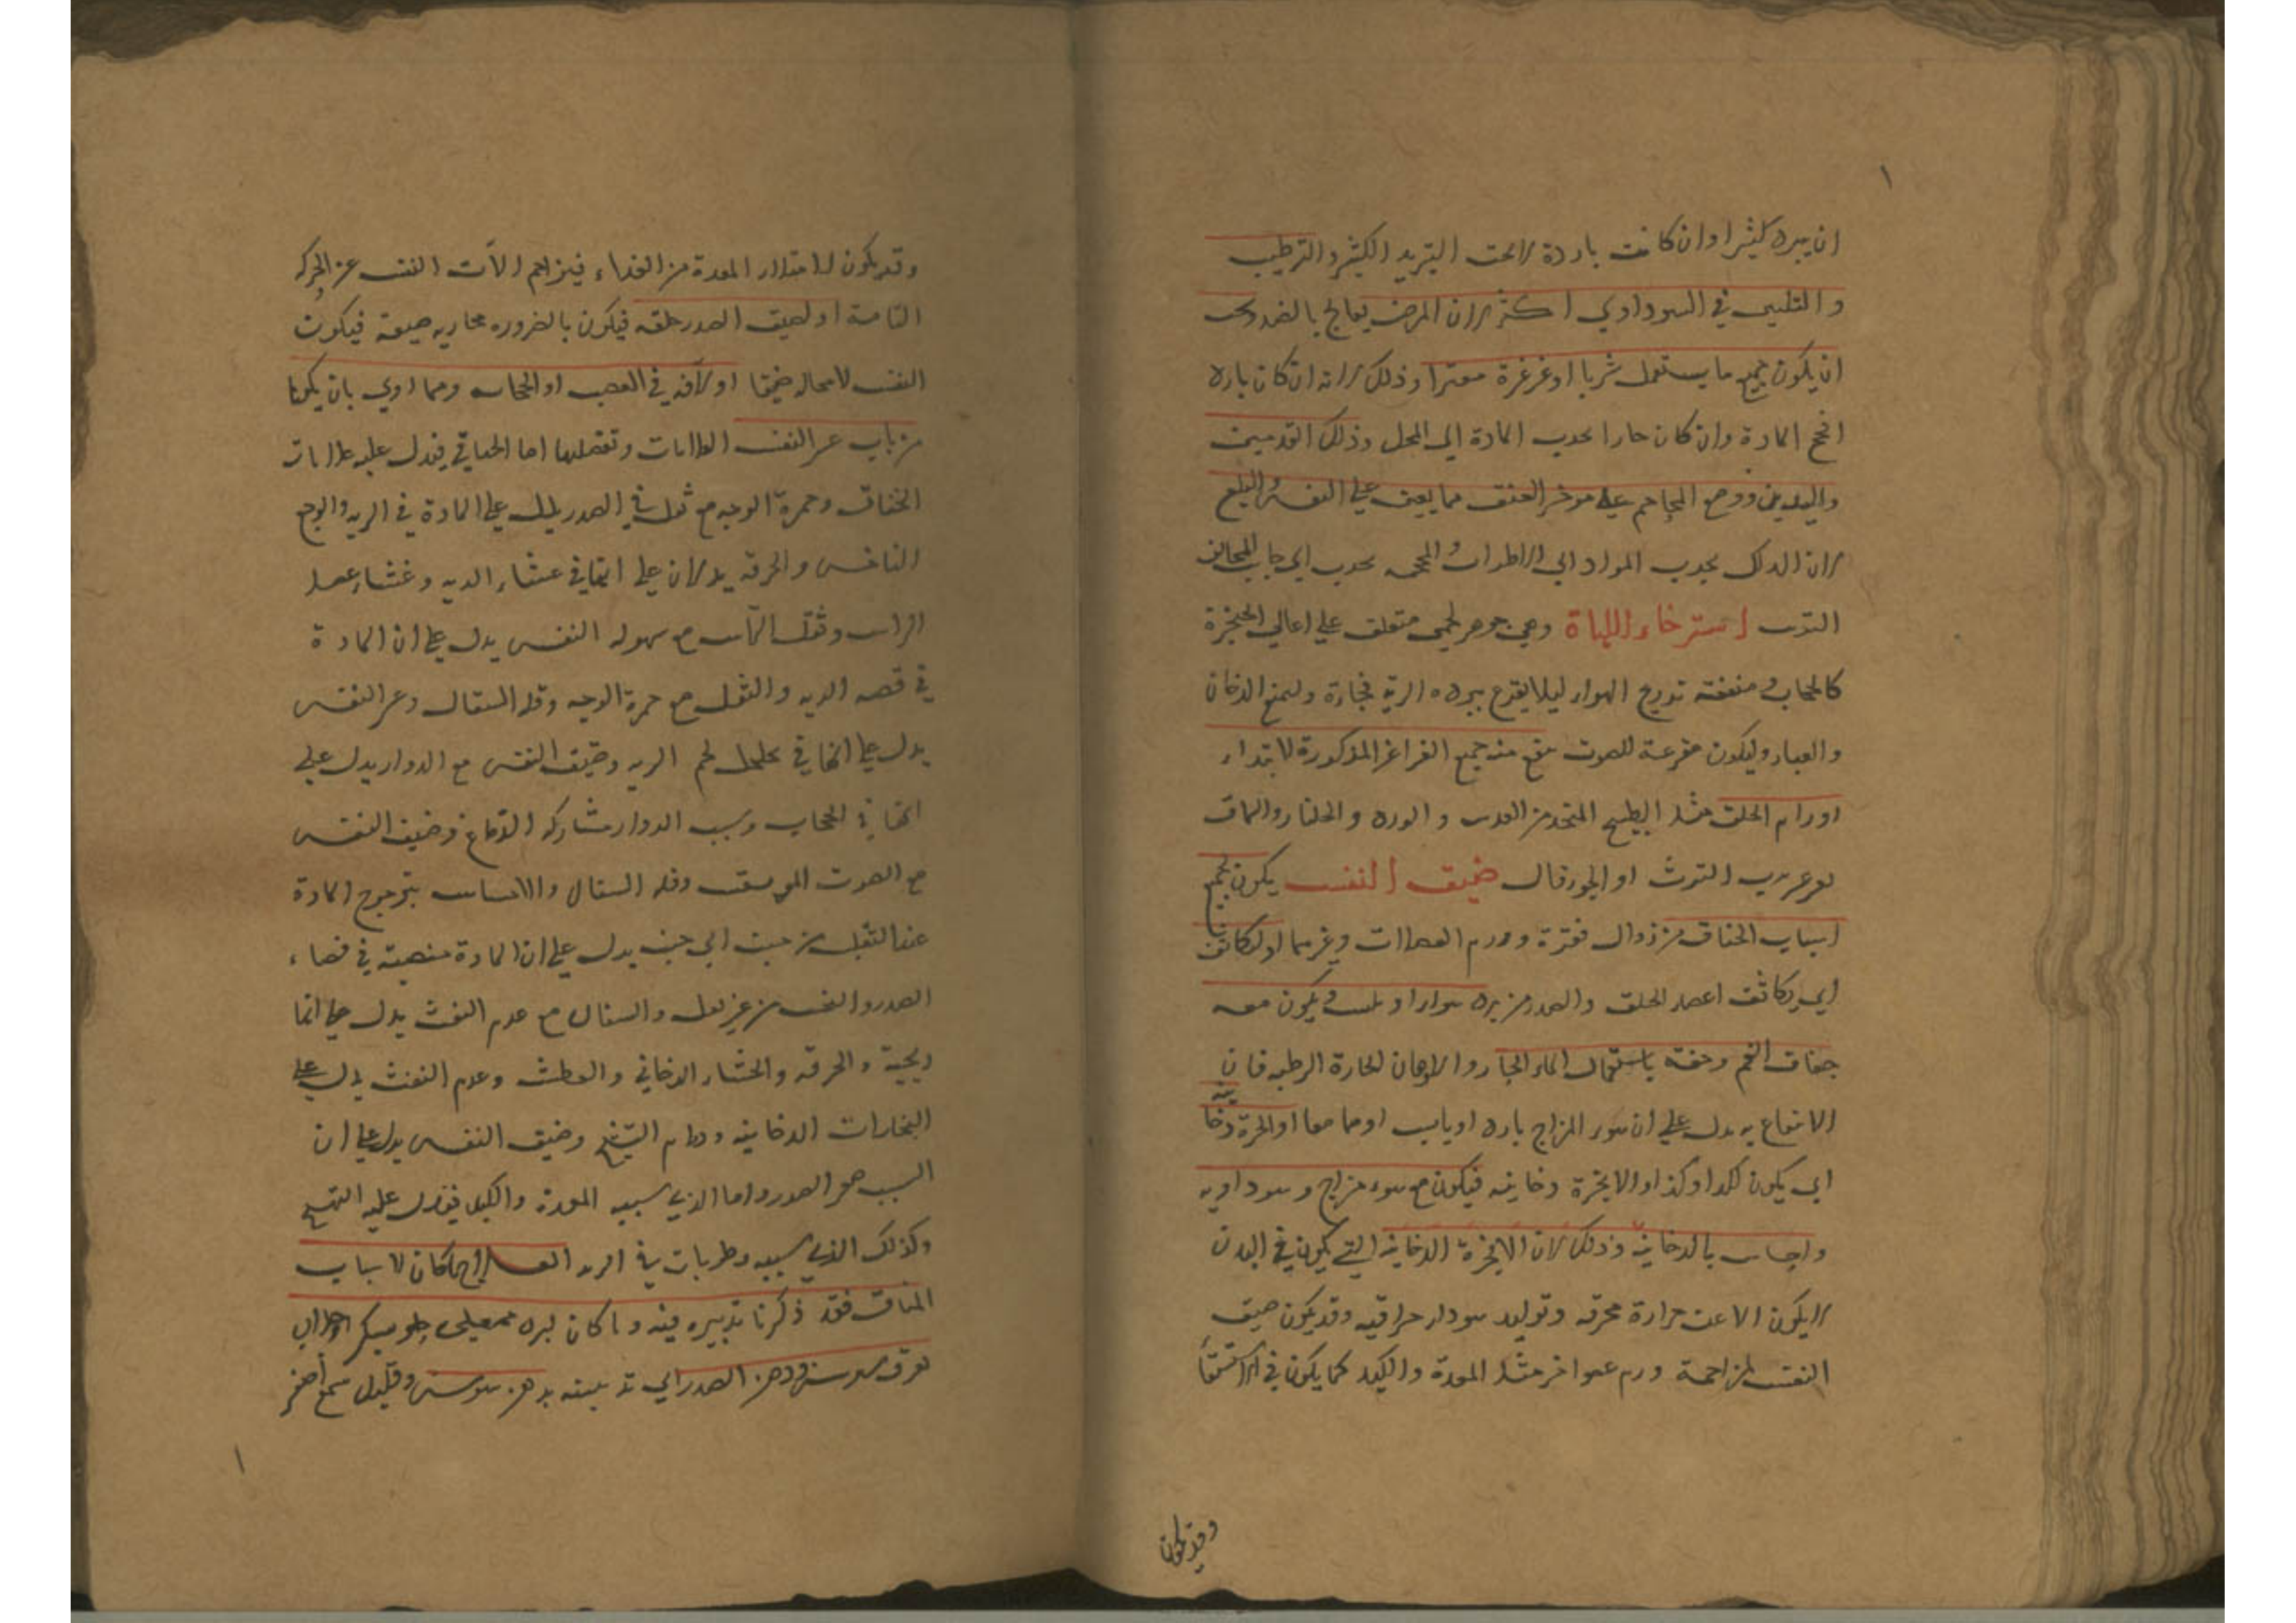 ان يبرد كثيرا وان كانت باردة لا تحت التبريد الكثير والترطيب
والتليين في السوداوي اكثر لان المرض يعالج بالضد وتحت
ان يكون جميع ما يستعمل شربا او غرغرة مفترا وذلك لانه ان كان بارد
افحج المادة وان كان حارا بحدب المادة الى المحل وذلك القدمين
واليدين ووضع المحاجم على موخر العنق مما يعين على النفس والبلع
لان الدلك بجدب المواد الى الاطراف والمحجمه بحدب الى جانب المخالف
استرخاء اللهاة وهي جوهر لحمي متعلق على اعالي الحنجرة
كالحجاب ومنفعته تدريج الهواء ليلا يقرع ببرده الرية فجاءة وليمنع الدخان
والغبار وليكون مقرعة للصوت منه جميع الغراغر المذكورة لابتداء
اورام الحلق مثل الطبيخ المتخد من العدس والورد والجلنار والسماق
التوث او الجوز قال ضيق النفس يكون لجميع
اسباب الخناق من زوال فقرة وورم العضلات وغيرهما او لتكاثف
اي يكاثف اعضا الحلق والصدر من برد هواء او يكون معه
جفاف الفم وخفته باستعمال الماء الحار والادهان الحارة الرطبه فان
الانتفاع به يدل على ان سوء المزاج بارد او يابس او هما معا او ابخرة دخا
نية
اي يكون كذا وكذا او لابخرة دخانيه فيكون مع سوء مزاج وسوداويه
واحساس بالدخانية وذلك لان الابخرة الدخانية التي يكون في البدن
لا يكون الا عن حرارة محرقه وتوليد سوداء حراقيه وقد يكون ضيق
النفس لمزاحمة ورم عضو اخر مثل المعدة والكبد كما يكون في الاستسقا
وقد يكون
وقد يكون لامتلاء المعدة من الغداء فيزاحم الآت النفس عن الحركه
التامة او لضيق الصدر خلقه فيكون بالضروره مجاريه ضيقة فيكون
النفس لا محاله ضيقا او لآفه في العصب او الحجاب وهما اولي بان يكونا
من باب عسر النفس العلامات وتفصيلها اما الخناقي فيدل عليه علامات
الخناق وحمرة الوجه مع ثقل في الصدر يدل على المادة في الريه والوجع
الناخس والحرقه يدلان على انها في غشاء الريه وغشاء عضل
الراس وثقل الراس مع سهوله النفس يدل على ان المادة
في قصبه الريه والثقل مع حمرة الوجه وقله السعال وعسر النفس
يدل على انها في خلخل لحم الريه وضيق النفس مع الدوار يدل على
انها في الحجاب وسبب الدوار مشاركه الدماغ وضيق النفس
مع الصوت وقله السعال والاحساس بترجرج المادة
عند التقلب من جنب الى جنب يدل على ان المادة منصبة في فضاء
الصدر والنفس من غير ثقل والسعال مع عدم النفث يدل على انها
ريحية والحرقه والجشاء الدخاني والعطش وعدم النفث يدل على
البخارات الدخانيه ودوام التشنج وضيق النفس يدل على ان
السبب هو الصدر واما الذي سببه المعدة والكبد فيدل عليه التهيج
وكذلك الذي سببه رطوبات في الريه العلاج ما كان لاسباب
الخناق فقد ذكرنا تدبيره فيه وما كان لبرد
عرق سوس ودهن الصدر اي تدهينه بدهن سوسن وقليل شمع اصفر